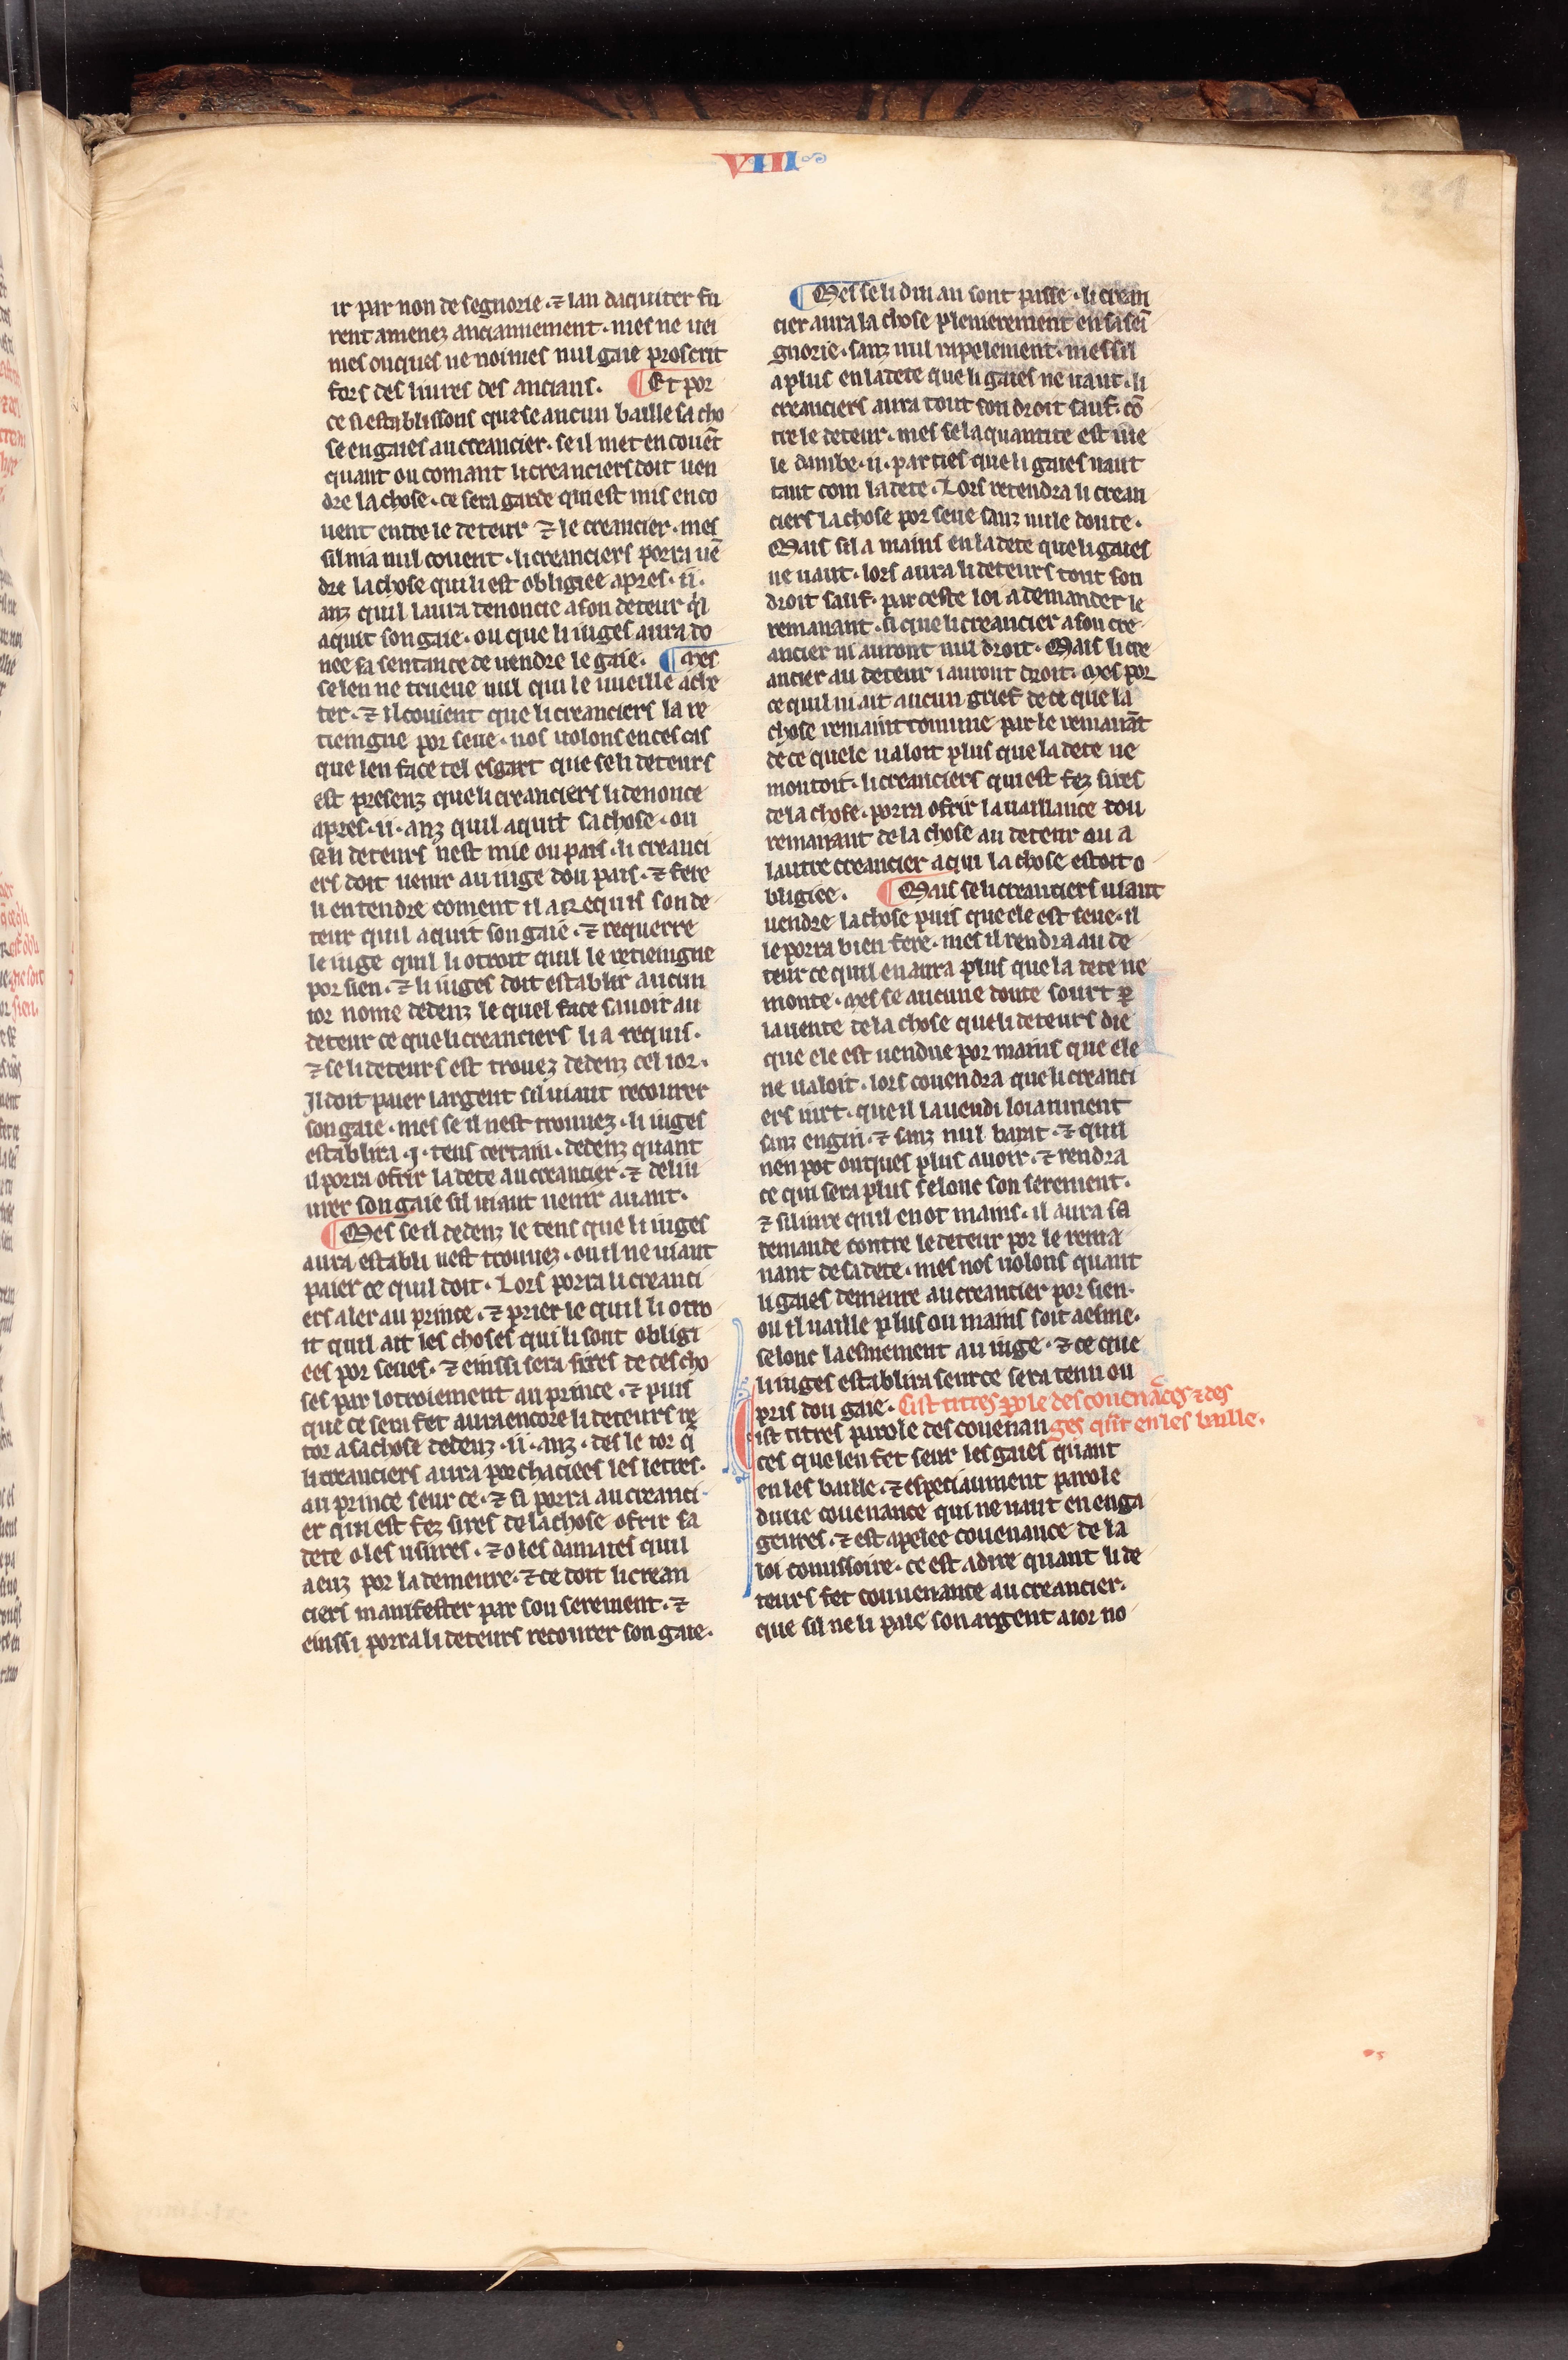 VIII
231
ir par non de segnorie · ⁊ lan daquiter fu
rent amenez anciannement · mes ne uei
mes onques ne noimes nul gaie proscrit
fors des liures des ancians · ¶ Et por
ce si establissons que se aucun baille sa cho
se en gaies au creancier · se il met en couēt
quant ou comant li creanciers doit uen
dre la chose · ce sera garde qui est mis en co
uent entre le deteur ⁊ le creancier · mes
sil nia nul couent · li creanciers porra uē
dre la chose qui li est obligiee apres · ii ·
anz quil laura denoncie a son deteur qͥl
aquit son gaie · ou que li iuges aura do
nee sa sentance de uendre le gaie · ¶ Mes
se len ne trueue nul qui le uueille ache
ter · ⁊ il couient que li creanciers la re
tiengne por seue · nos uolons en ces cas
que len face tel esgart que se li deteurs
est presenz que li creanciers li denonce
apres · ii · anz quil aquit sa chose · ou
se li deteurs nest mie ou pais · li creanci
ers doit uenir au iuge dou pais · ⁊ fere
li entendre coment il a requis son de
teur quil aquit son gaie · ⁊ requerre
le iuge quil li otroit quil le retieingne
por sien · ⁊ li iuges doit establir aucun
ior nome dedenz le quel face sauoir au
deteur ce que li creanciers li a requis ·
⁊ se li deteurs est trouez dedenz cel ior ·
Il doit paier largent sil uiaut recourer
son gaie · mes se il nest trouuez · li iuges
establira · i · tens certain · dedenz quant
il porra ofrir la dete au creancier · ⁊ deliu
urer son gaie sil uiaut uenir auant ·
¶ Mes se il dedenz le tens que li iuges
aura establi nest trouuez · ou il ne uiaut
paier ce quil doit · Lors porra li creanci
ers aler au prince · ⁊ prier le quil li otro
it quil ait les choses qui li sont obligi
ees por seues · ⁊ einssi sera sires de ces cho
ses par lotroiement au prince · ⁊ puis
que ce sera fet aura encore li deteurs re
tor a sa chose dedenz · ii · anz · des le ior q̄
li creanciers aura porchaciees les letres ·
au prince seur ce · ⁊ si porra au creanci
er qui est fez sires de la chose ofrir sa
dete o les usures · ⁊ o les damaies quil
a euz por la demeure · ⁊ ce doit li crean
ciers manifester par son serement · ⁊
einssi porra li deteurs recourer son gaie ·
¶ Mes se li dui an sont passe · li crean
cier aura la chose plenierement en sa sei
gnorie · sanz nul rapelement · mes sil
a plus en la dete que li gaies ne uaut · li
creanciers aura tout son droit sauf · cō
tre le deteur · mes se la quantite est iue
le dambe · ii · parties que li gaies uaut
tant com la dete · Lors retendra li crean
ciers la chose por seue sanz nule doute ·
Mais sil a mains en la dete que li gaies
ne uaut · lors aura li deteurs tout son
droit sauf · par ceste loi a demander le
remanant · si que li creancier a son cre
ancier ni auront nul droit · Mais li cre
ancier au deteur i auront droit · Mes por
ce quil ni ait aucun grief de ce que la
chose remaint comune par le remanāt
de ce quele ualoit plus que la dete ne
montoit · li creanciers qui est fez sires
de la chose · porra ofrir la uaillance dou
remanant de la chose au deteur ou a
lautre creancier a qui la chose estoit o
bligiee · ¶ Mais se li creanciers uiaut
uendre la chose puis que ele est seue · il
le porra bien fere · mes il rendra au de
teur ce quil en aura plus que la dete ne
monte · Mes se aucune doute sourt ꝑ
la uente de la chose que li deteurs die
que ele est uendue por mains que ele
ne ualoit · lors couendra que li creanci
ers iurt · que il la uendi loiaument
sanz engin · ⁊ sanz nul barat · ⁊ quil
nen pot onques plus auoir · ⁊ rendra
ce qui sera plus selonc son serement ·
⁊ sil iure quil en ot mains · il aura sa
demande contre le deteur por le rema
nant de sa dete · mes nos uolons quant
li gaies demeure au creancier por sien ·
ou il uaille plus ou mains soit aesme ·
selonc laesmement au iuge · ⁊ ce que
li iuges establira seur ce sera tenu ou
pris dou gaie · Cist titres ꝑole des couenāces ⁊ des
ges qn̄t en les baille ·
Cist titres parole des couenan
ces que len fet seur les gaies quant
en les baille · ⁊ especiaument parole
dune couenance qui ne uaut en enga
geures · ⁊ est apelee couenance de la
loi comissoire · ce est a dire quant li de
teurs fet couuenance au creancier ·
que sil ne li paie son argent a ior no